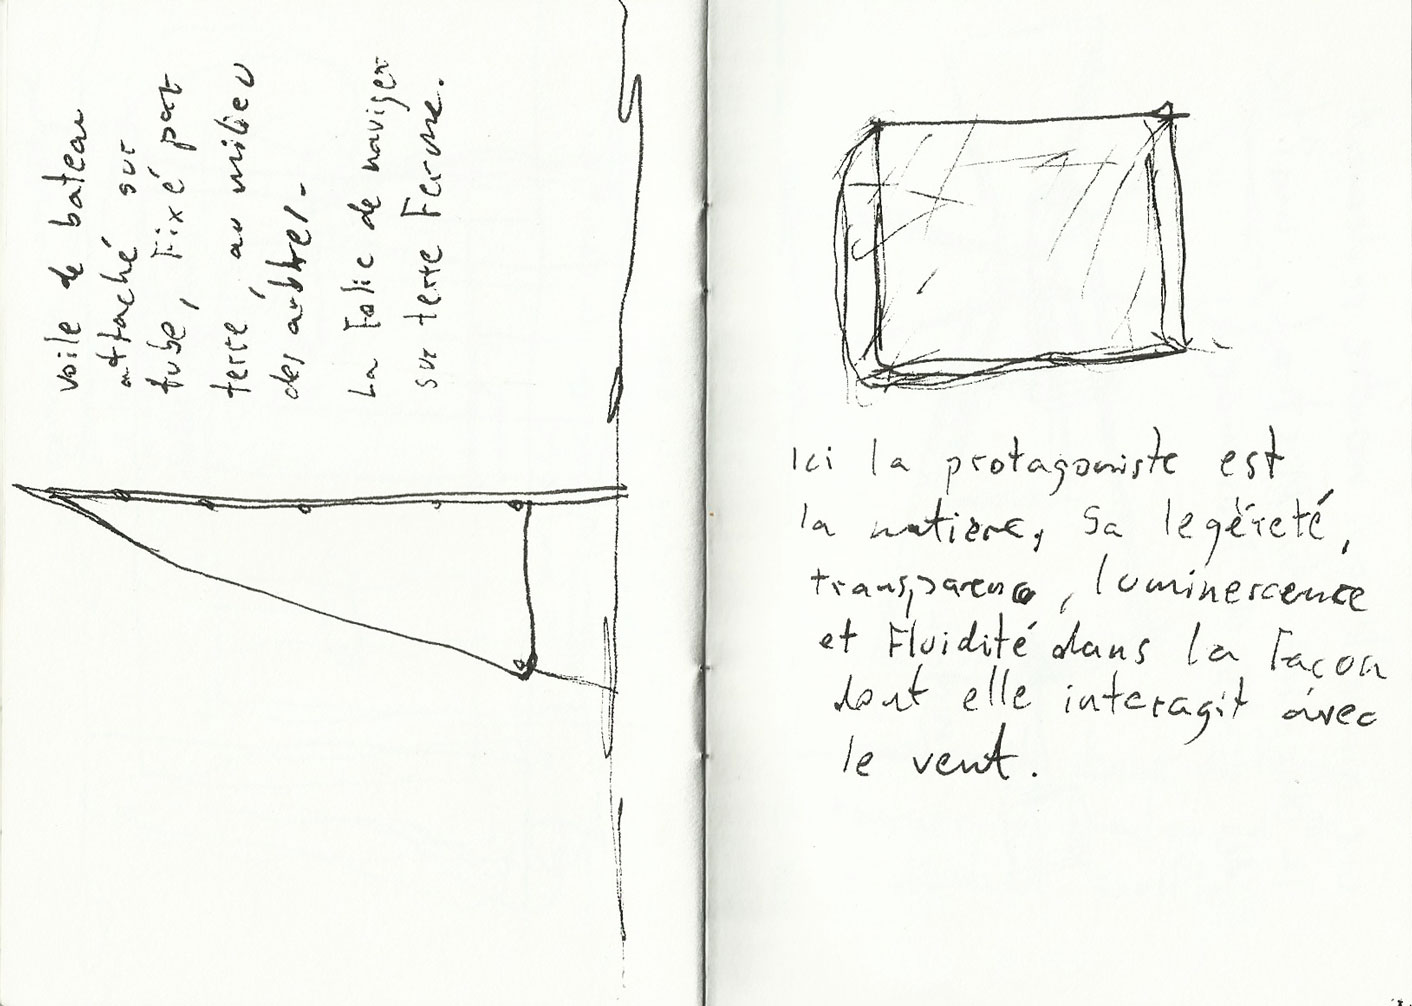 voile de bateau
attaché sur
tube, Fixé par
terre, au milieu
des arbres.
La Folie de naviger
sur terre Ferme.
Ici la protagoniste est
la matière, sa legèreté,
transparence, luminescence
et Fluidité dans la Façon
dont elle interagit avec
le vent.